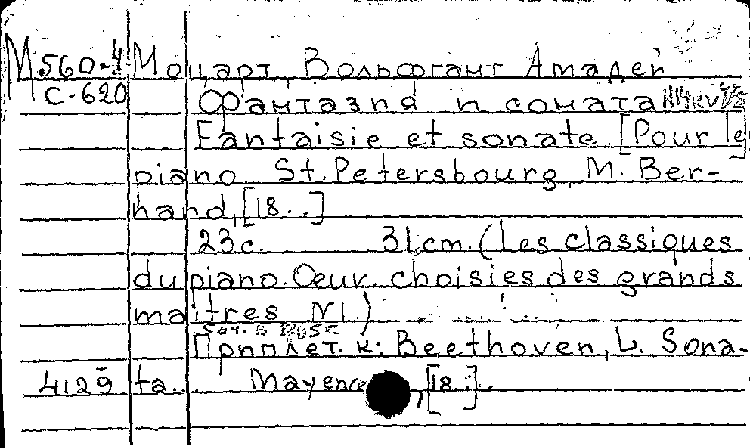 М 560-4 Моцарт, Вольфгант Амадей
С-620 Фантазия и соната
Fantaisie et sonate [Pour le
piano St. Petersbourg, M. Ber-
nard, [18..]
23с. 31cm. (Les classiques
du piano. Oeuv. choisies des grands
maitres N1.)
Приплет. к: Beethoven, L. Sona-
4129 ta. Mayence, [18..].